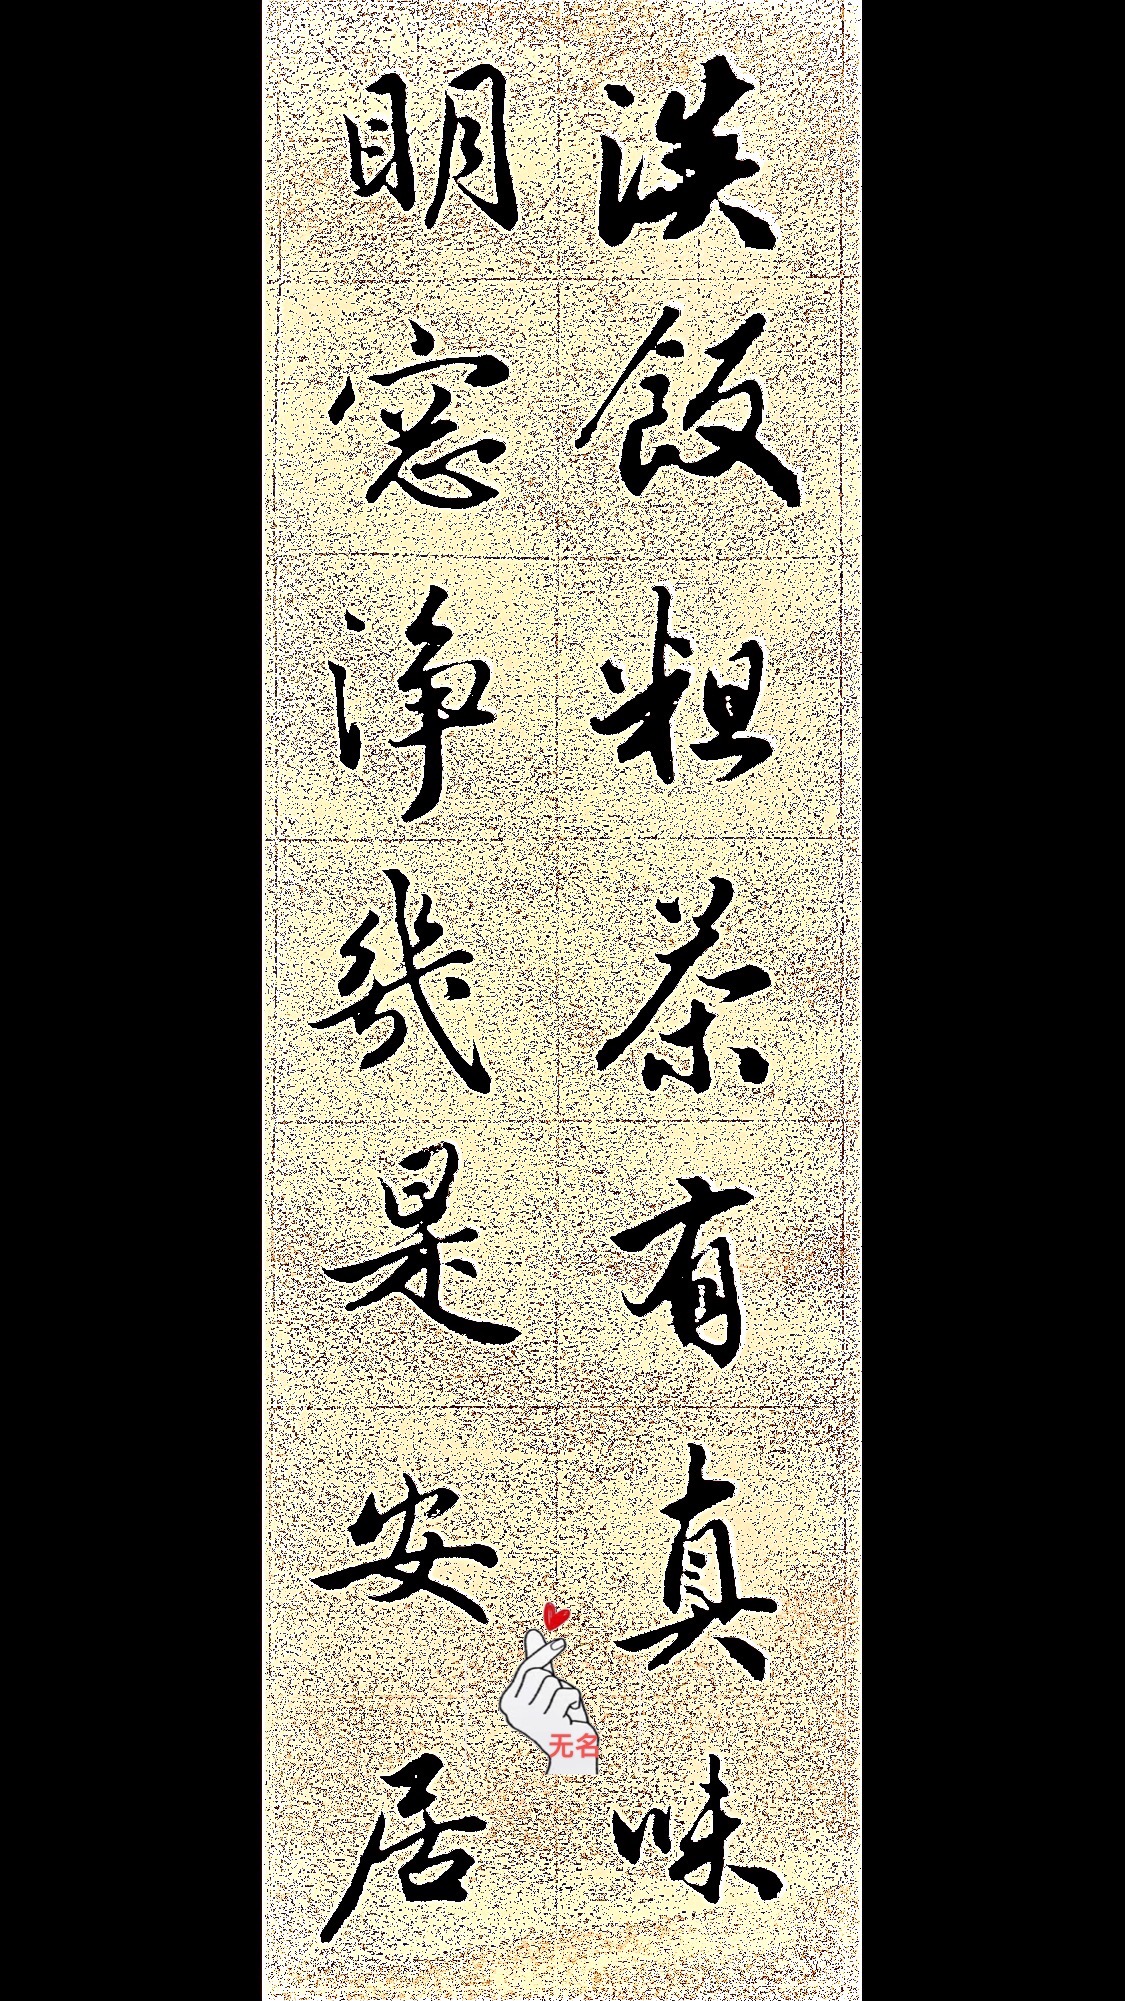 淡飯粗茶有真味
明窓浄幾是安居
无名